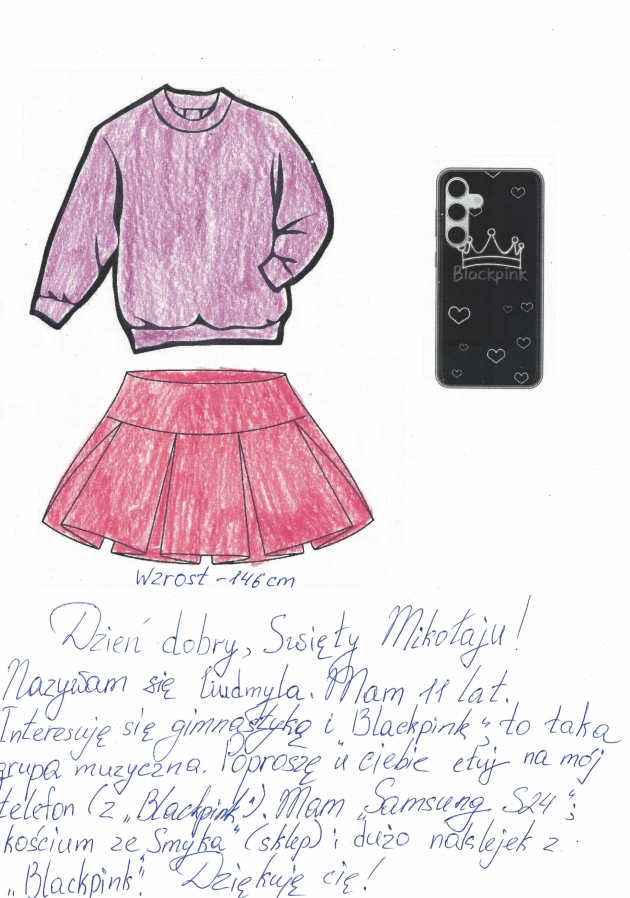 Blackpink
Wzrost - 146 cm
Dzień dobry, Swięty Mikołaju!
Nazywam się Liudmyla. Mam 11 lat.
Interesuję się gimnastyką i "Blackpink", to taka
grupa muzyczna. Poproszę u ciebie etuj na mój
telefon (z "Blackpink"). Mam "Samsung S24";
kościum ze "Smyka" (sklep) i dużo naklejek z
"Blackpink". Dziękuję cię!